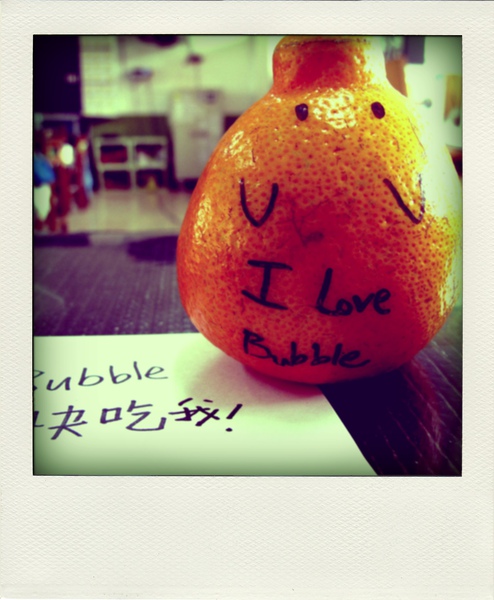 I Love
Bubble
Bubble
快吃我!